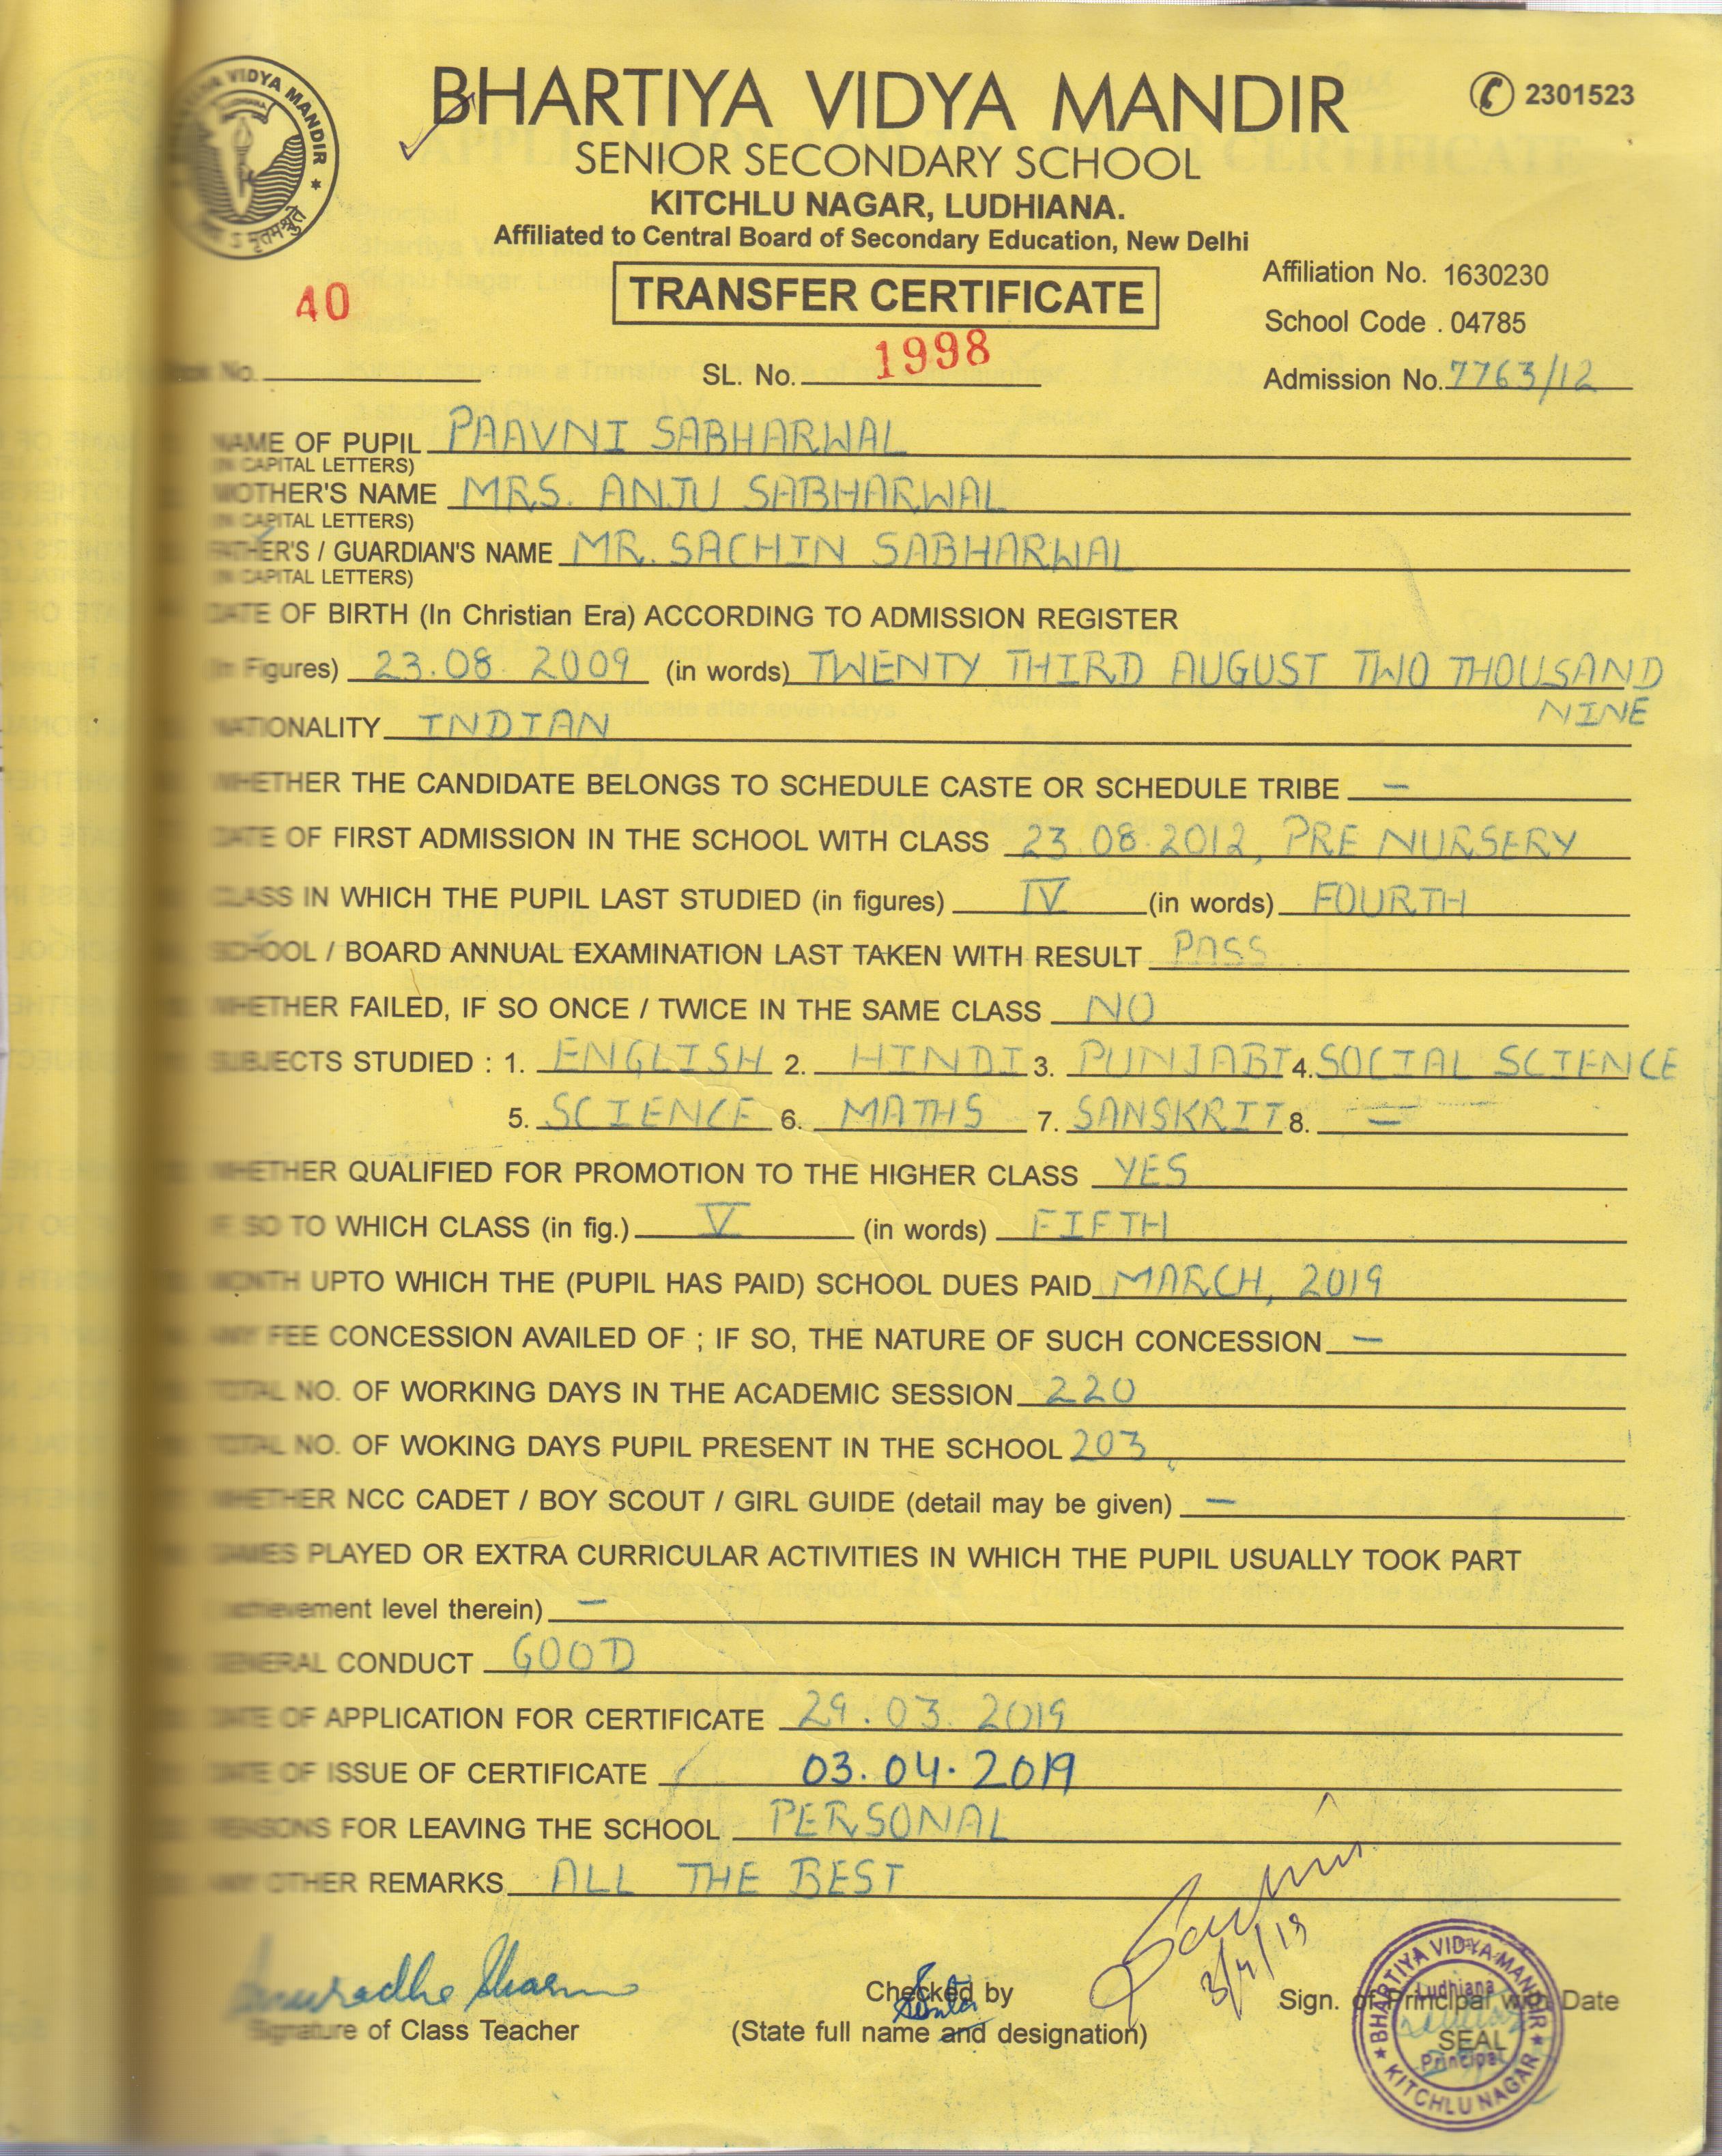 VIDYA MANDIR
LUDHIANA
BHARTIYA VIDYA MANDIR
2301523
SENIOR SECONDARY SCHOOL
KITCHLU NAGAR, LUDHIANA.
Affiliated to Central Board of Secondary Education, New Delhi
TRANSFER CERTIFICATE
Affiliation No. 1630230
School Code . 04785
40
Book No. SL. No. 1998 Admission No. 7763/12
NAME OF PUPIL PAAVNI SABHARWAL
(IN CAPITAL LETTERS)
MOTHER'S NAME MRS. ANJU SABHARWAL
(IN CAPITAL LETTERS)
FATHER'S / GUARDIAN'S NAME MR. SACHIN SABHARWAL
(IN CAPITAL LETTERS)
DATE OF BIRTH (In Christian Era) ACCORDING TO ADMISSION REGISTER
(In Figures) 23.08.2009 (in words) TWENTY THIRD AUGUST TWO THOUSAND
NINE
NATIONALITY INDIAN
WHETHER THE CANDIDATE BELONGS TO SCHEDULE CASTE OR SCHEDULE TRIBE –
DATE OF FIRST ADMISSION IN THE SCHOOL WITH CLASS 23.08.2012, PRE NURSERY
CLASS IN WHICH THE PUPIL LAST STUDIED (in figures) IV (in words) FOURTH
SCHOOL / BOARD ANNUAL EXAMINATION LAST TAKEN WITH RESULT PASS
WHETHER FAILED, IF SO ONCE / TWICE IN THE SAME CLASS NO
SUBJECTS STUDIED : 1. ENGLISH 2. HINDI 3. PUNJABI 4. SOCIAL SCIENCE
5. SCIENCE 6. MATHS 7. SANSKRIT 8. =
WHETHER QUALIFIED FOR PROMOTION TO THE HIGHER CLASS YES
IF SO TO WHICH CLASS (in fig.) V (in words) FIFTH
MONTH UPTO WHICH THE (PUPIL HAS PAID) SCHOOL DUES PAID MARCH, 2019
ANY FEE CONCESSION AVAILED OF ; IF SO, THE NATURE OF SUCH CONCESSION –
TOTAL NO. OF WORKING DAYS IN THE ACADEMIC SESSION 220
TOTAL NO. OF WOKING DAYS PUPIL PRESENT IN THE SCHOOL 203
WHETHER NCC CADET / BOY SCOUT / GIRL GUIDE (detail may be given) –
GAMES PLAYED OR EXTRA CURRICULAR ACTIVITIES IN WHICH THE PUPIL USUALLY TOOK PART
(achievement level therein) –
GENERAL CONDUCT GOOD
DATE OF APPLICATION FOR CERTIFICATE 29.03.2019
DATE OF ISSUE OF CERTIFICATE 03.04.2019
REASONS FOR LEAVING THE SCHOOL PERSONAL
ANY OTHER REMARKS ALL THE BEST
Anuradha Sharma
3/4/19
Signature of Class Teacher
Checked by
(State full name and designation)
Sign. of Principal with Date
SEAL
BHARTIYA VIDYA MANDIR
Ludhiana
Principal
KITCHLU NAGAR